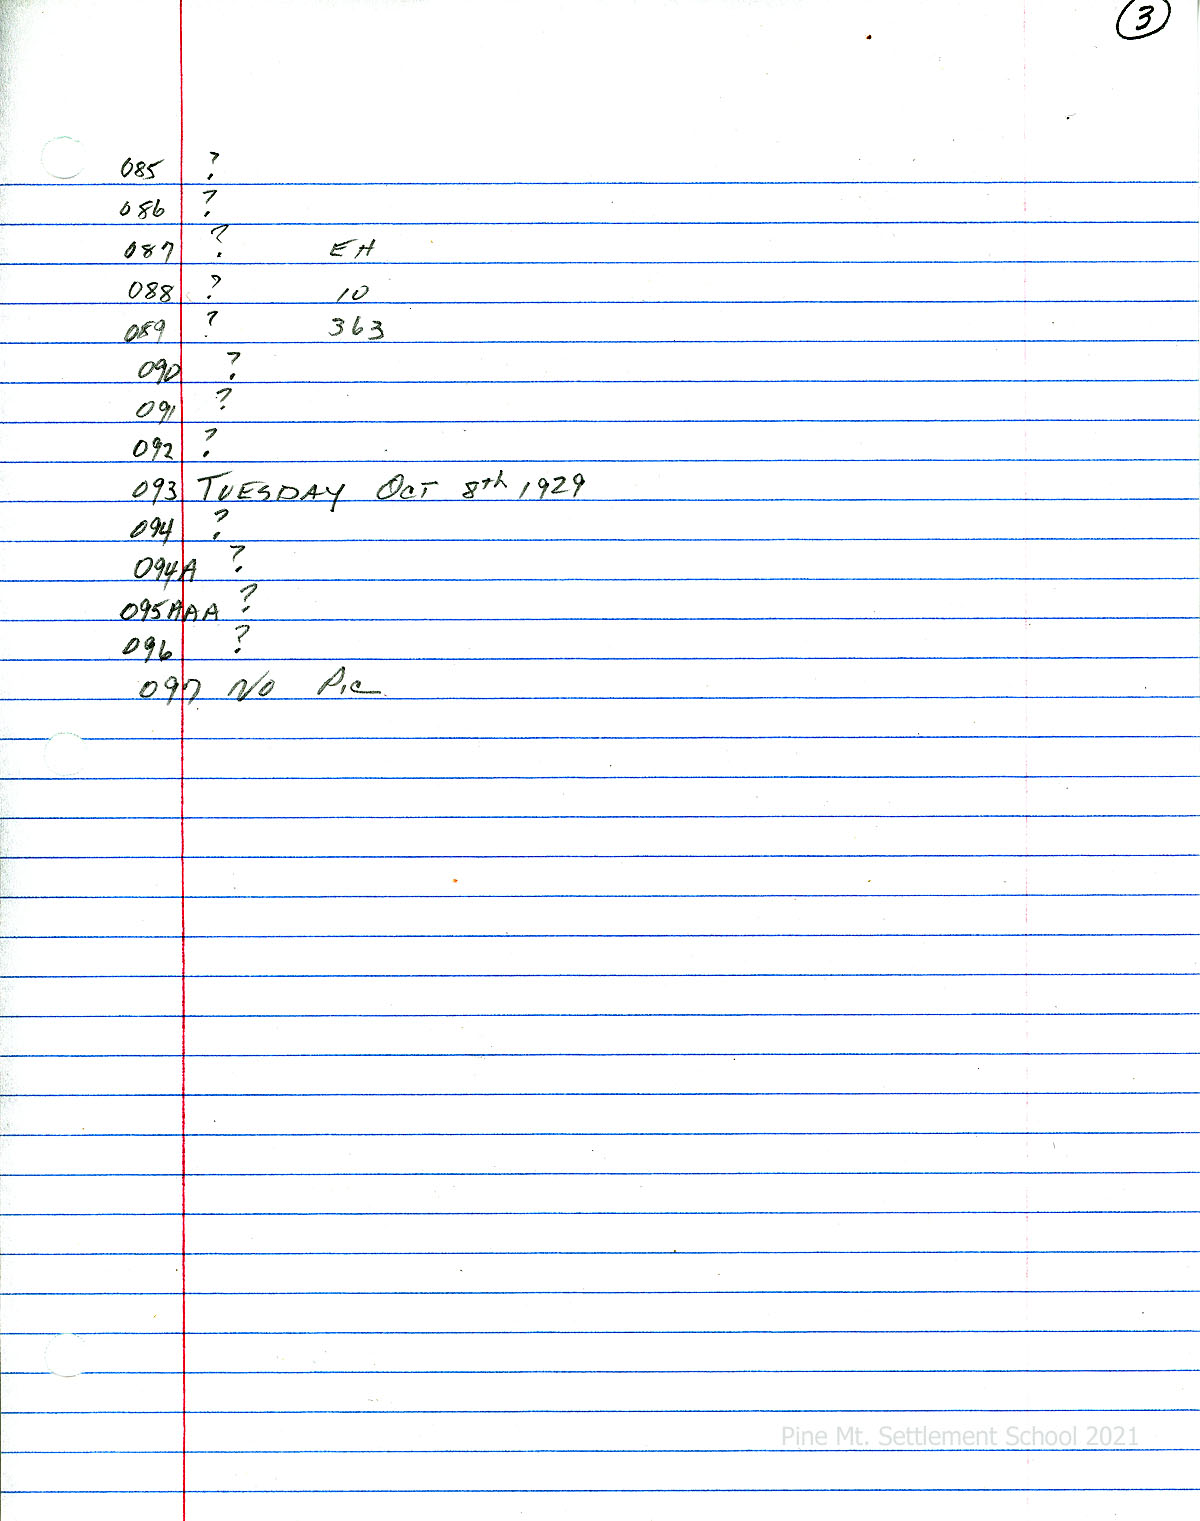 3
085 ?
086 ?
087 ? EH
088 ? 10
089 ? 363
090 ?
091 ?
092 ?
093 TUESDAY OCT 8th 1929
094 ?
094A ?
095AAA ?
096 ?
097 NO Pic
Pine Mt. Settlement School 2021